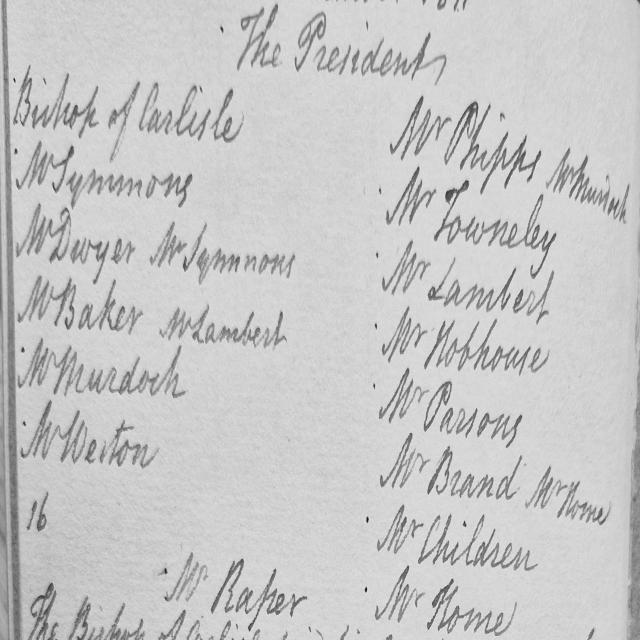 The President,
Bishop of Carlisle
Mr Symmons
Mr Dwyer Mr Symmons
Mr Baker Mr Lambert
Mr Murdoch
Mr Weston
16
Mr Phipps Mr Murdoch
Mr Towneley
Mr Lambert
Mr Hobhouse
Mr Parsons
Mr Brand Mr Home
Mr Children
Mr Home
Mr Raper
The Bishop of Carlisle